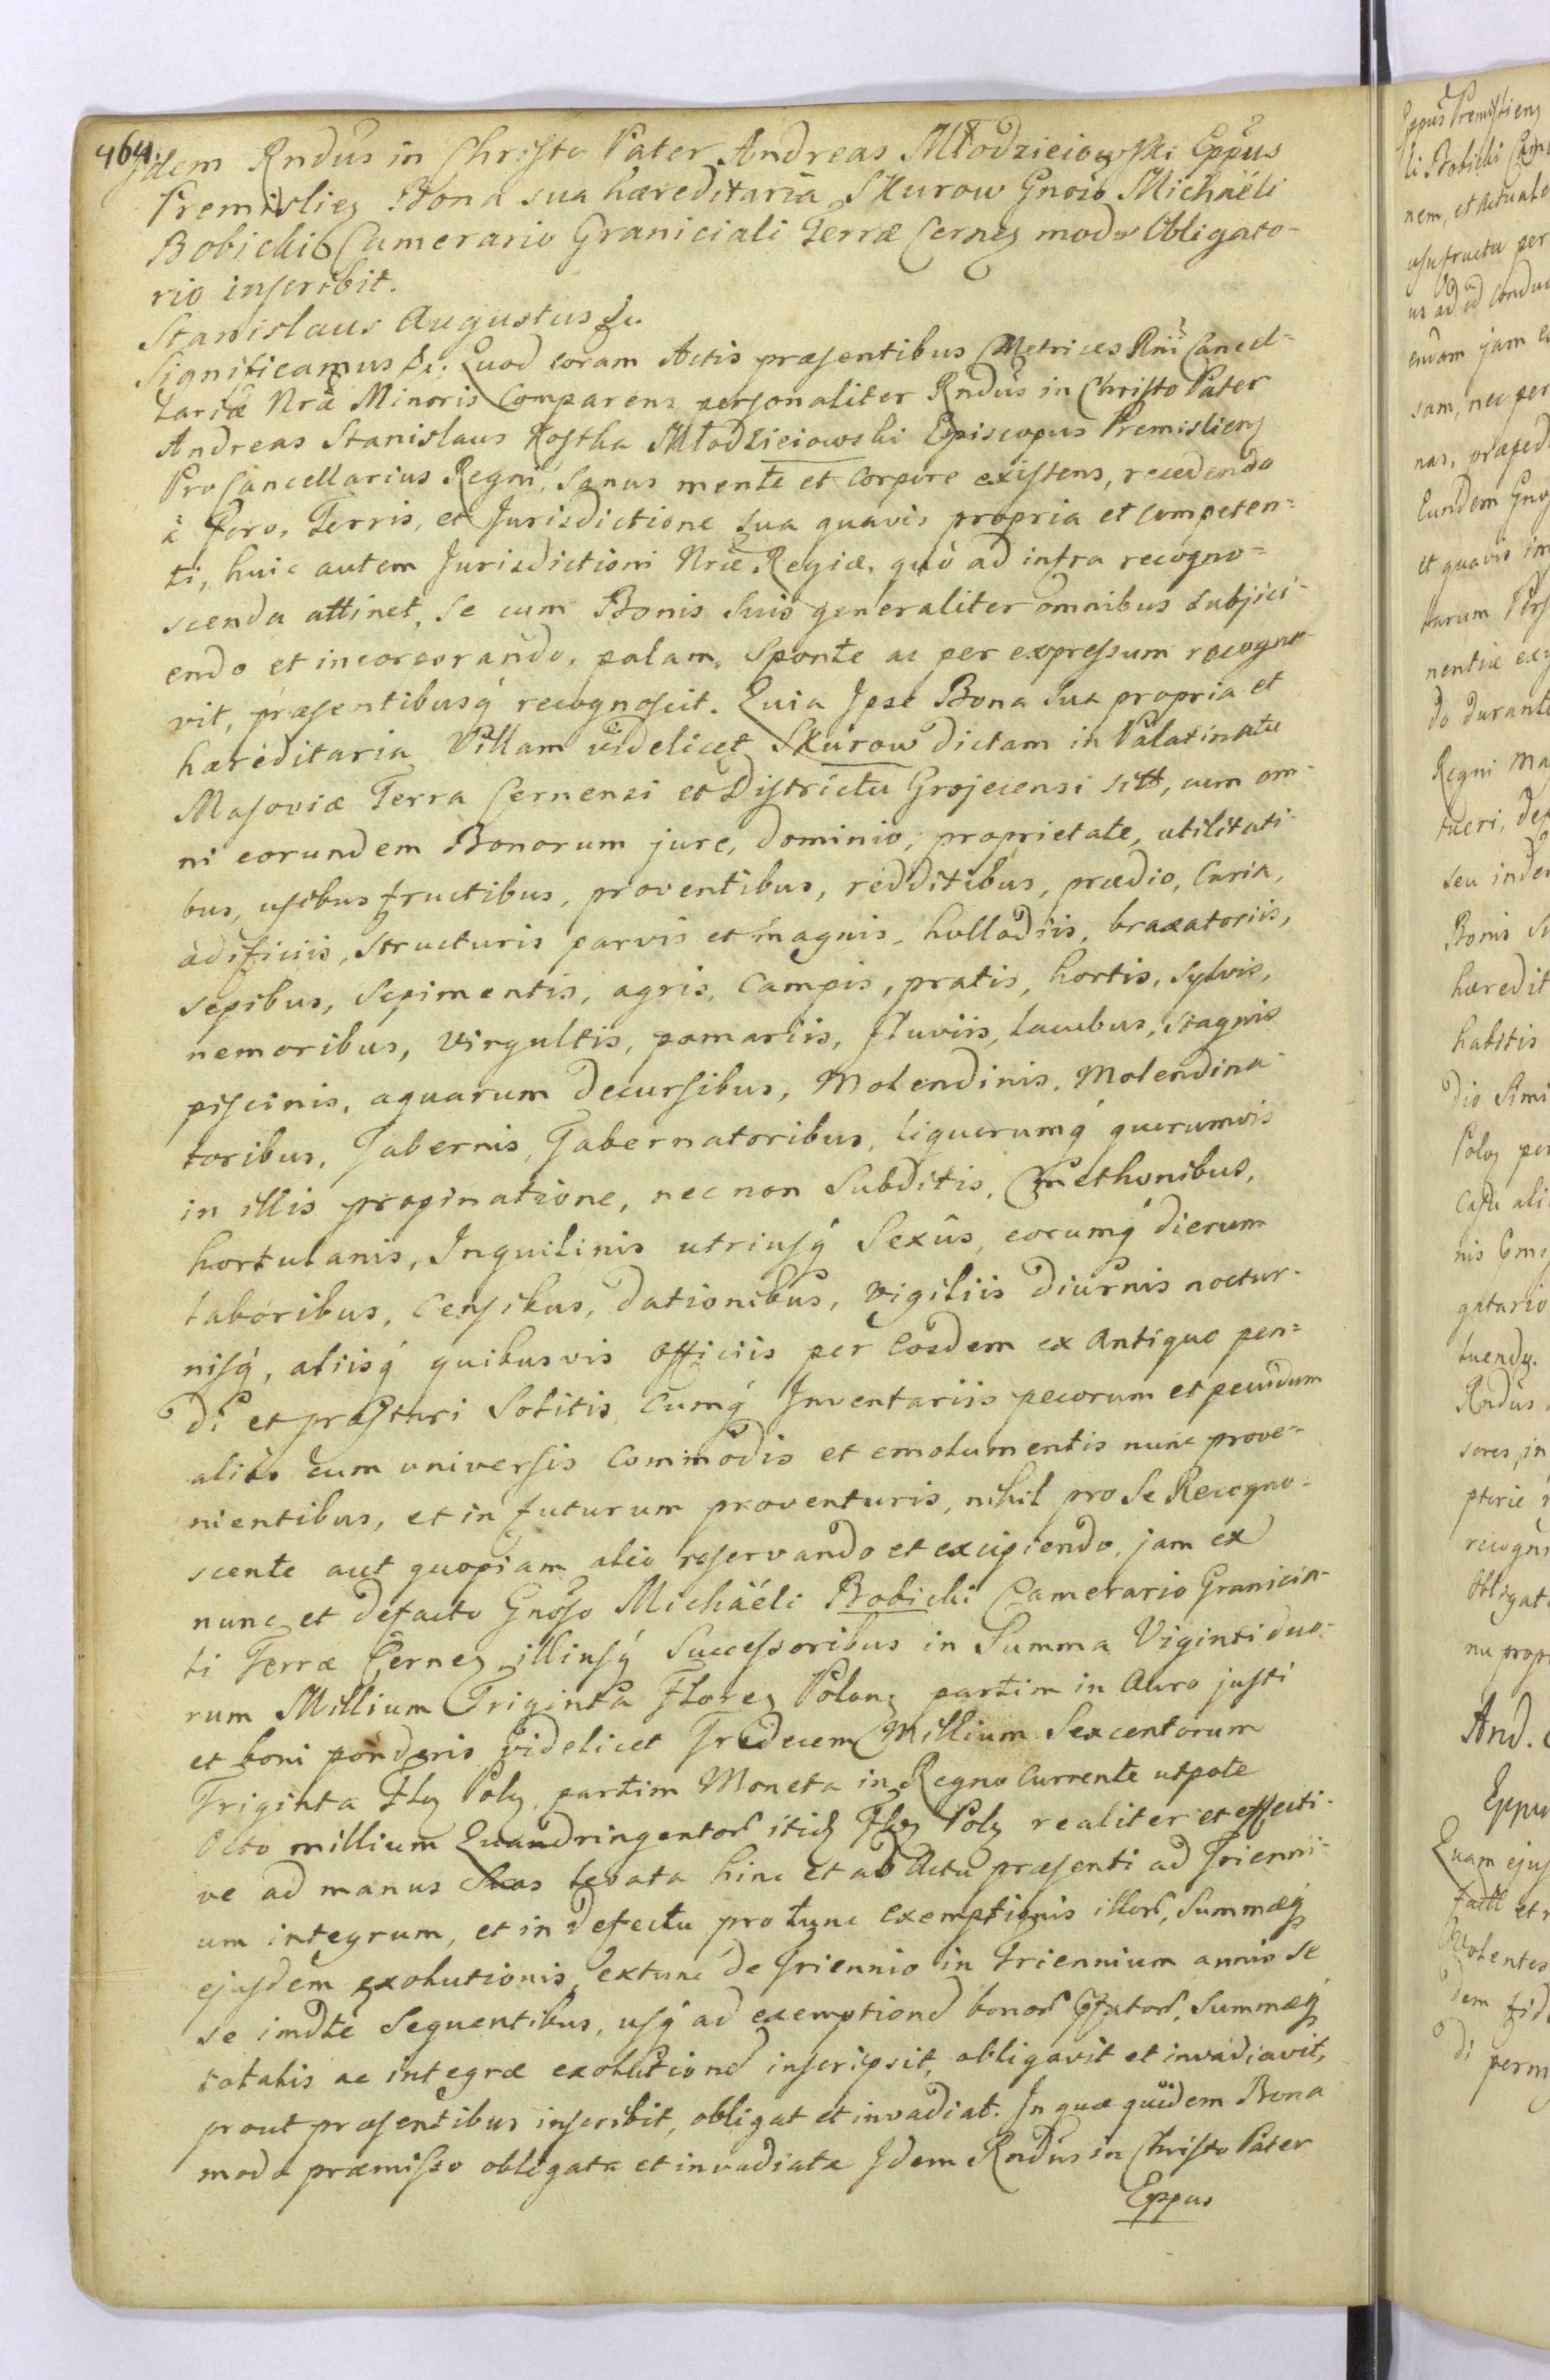 464.
Idem Rndus in Christo Pater Andreas Młodzieiowski Eppus
Premislien Bona sua hæreditaria Skurow Gnoso Michaëli
Bobicki Camerario Graniciali Terræ Cernen modo Obligato-
rio inscribit.
Stanislaus Augustus &c.
Significamus &c. Quod coram Actis præsentibus Metrices Rni Cancel-
lariæ Nræ Minoris Comparens personaliter Rndus in Christo Pater
Andreas Stanislaus Kostka Młodzieiowski Episcopus Premislien
Pro Cancellarius Regni, sanus mente et corpore existens, recedendo
à Foro, Terris, et Jurisdictione sua quavis propria et competen=
ti, huic autem Jurisdictioni Nræ Regiæ, quò ad infra recogno=
scenda attinet, se cum Bonis suis generaliter omnibus subjici-
endo et incorporando, palam, sponte ac per expressum recogno-
vit, præsentibusq recognoscit. Quia Ipse Bona sua propria et
hæreditaria Villam videlicet Skurow dictam in Palatinatu
Masoviæ Terra Cernensi et Districtu Grojecensi sitt, cum om-
ni eorundem Bonorum jure, dominio, proprietate, utilitati-
bus, usibus fructibus, proventibus, redditibus, prædio, Curia,
ædificiis, structuris parvis et magnis, hulladiis, braxatoriis,
sepibus, sepimentis, agris, Campis, pratis, hortis, sylvis,
nemoribus, Virgultis, pomariis, fluviis, lacubus, stagnis
piscinis, aquarum decursibus, Molendinis, Molendina-
toribus, Tabernis, Tabernatoribus, liquorumq quorumvis
in illis propinatione, nec non Subditis, Cmethonibus,
hortulanis, Inquilinis utriusq Sexûs, eorumq dierum
laboribus, Censibus, dationibus, Vigiliis diurnis noctur-
nisq, aliisq quibusvis officiis per Eosdem ex antiquo pen=
di et præstari Solitis, Cumq Inventariis pecorum et pecudum
aliis cum universis Commodis et emolumentis nunc prove=
nientibus, et in futurum proventuris, nihil pro Se Recogno-
scente aut quopiam alio reservando et excipiendo, jam ex
nunc et defacto Gnoso Michaëli Bobicki Camerario Granicia-
li Terræ Cernen illiusq Successoribus in Summa Viginti duo-
rum Millium Triginta Floren Polon partim in Auro justi
et boni ponderis videlicet Tredecem Millium Sexcentorum
Triginta Fln Poln, partim Moneta in Regno Currente utpote
Octo millium Quandringentor itid Fln Poln realiter et effecti-
ve ad manus Suas levata hinc et ab Actu præsenti ad Trienni-
um integrum, et in defectu pro tunc exemptionis illor, Summæq
ejusdem exolutionis, extunc de Triennio in Triennium annis se
se imdte Sequentibus, usq ad exemptione bonor Pfator, Summæq
totalis ac integræ exolutione inscripsit, obligavit et invadiavit,
prout præsentibus inscribit, obligat et invadiat. In quæ quidem Bona
modo præmisso obligata et invadiata Idem Rndus in Christo Pater
Eppus